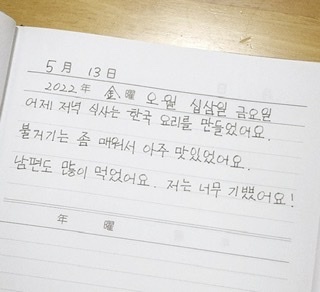 5月 13日
2022年 金曜 오월 십삼일 금요일
어제 저녁 식사는 한국 요리를 만들었어요.
불거기는 좀 매워서 아주 맛있었어요.
남편도 많이 먹었어요. 저는 너무 기뻤어요!
年 曜